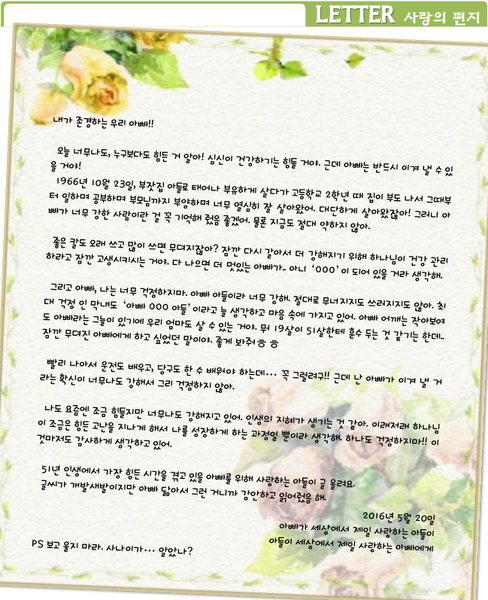 LETTER 사랑의 편지
내가 존경하는 우리 아빠!!
오늘 너무나도, 누구보다도 힘든 거 알아! 심신이 건강하기는 힘들 거야. 근데 아빠는 반드시 이겨 낼 수 있
을 거야!
1966년 10월 23일, 부잣집 아들로 태어나 부유하게 살다가 고등학교 2학년 때 집이 부도 나서 그때부
터 일하며 공부하며 부모님까지 부양하며 너무 열심히 잘 살아왔어. 대단하게 살아왔잖아! 그러니 아
빠가 너무 강한 사람이란 걸 꼭 기억해 줬음 좋겠어. 물론 지금도 절대 약하지 않아.
좋은 칼도 오래 쓰고 많이 쓰면 무뎌지잖아? 잠깐 다시 갈아서 더 강해지기 위해 하나님이 건강 관리
하라고 잠깐 고생시키시는 거야. 다 나으면 더 멋있는 아빠가.. 아니 ‘OOO’이 되어 있을 거라 생각해.
그리고 아빠, 나는 너무 걱정하지마. 아빠 아들이라 너무 강해. 절대로 무너지지도 쓰러지지도 않아. 최
대 걱정 인 막내도 ‘아빠 OOO 아들’이라고 늘 생각하고 마음 속에 가지고 있어. 아빠 어깨는 작아보여
도 아빠라는 그늘이 있기에 우리 엄마도 살 수 있는 거야. 뭐 19살이 51살한테 훈수 두는 것 같기는 한데..
잠깐 무뎌진 아빠에게 하고 싶었던 말이야. 좋게 봐주어 ㅎㅎ
빨리 나아서 운전도 배우고, 당구도 한 수 배워야 하는데… 꼭 그럴려구!! 근데 난 아빠가 이겨 낼 거
라는 확신이 너무나도 강해서 그리 걱정하지 않아.
나도 요즘엔 조금 힘들지만 너무나도 강해지고 있어. 인생의 지혜가 생기는 것 같아. 이래저래 하나님
이 조금은 힘든 고난을 지나게 해서 나를 성장하게 하는 과정일 뿐이라 생각해. 하나도 걱정하지마!! 이
것마저도 감사하게 생각하고 있어.
51년 인생에서 가장 힘든 시간을 겪고 있을 아빠를 위해 사랑하는 아들이 글 올려요.
글씨가 개발새발이지만 아빠 닮아서 그런 거니까 감안하고 읽어줬음 해.
2016년 5월 20일
아빠가 세상에서 제일 사랑하는 아들이
아들이 세상에서 제일 사랑하는 아빠에게
PS 보고 울지 마라. 사나이가… 알았나?